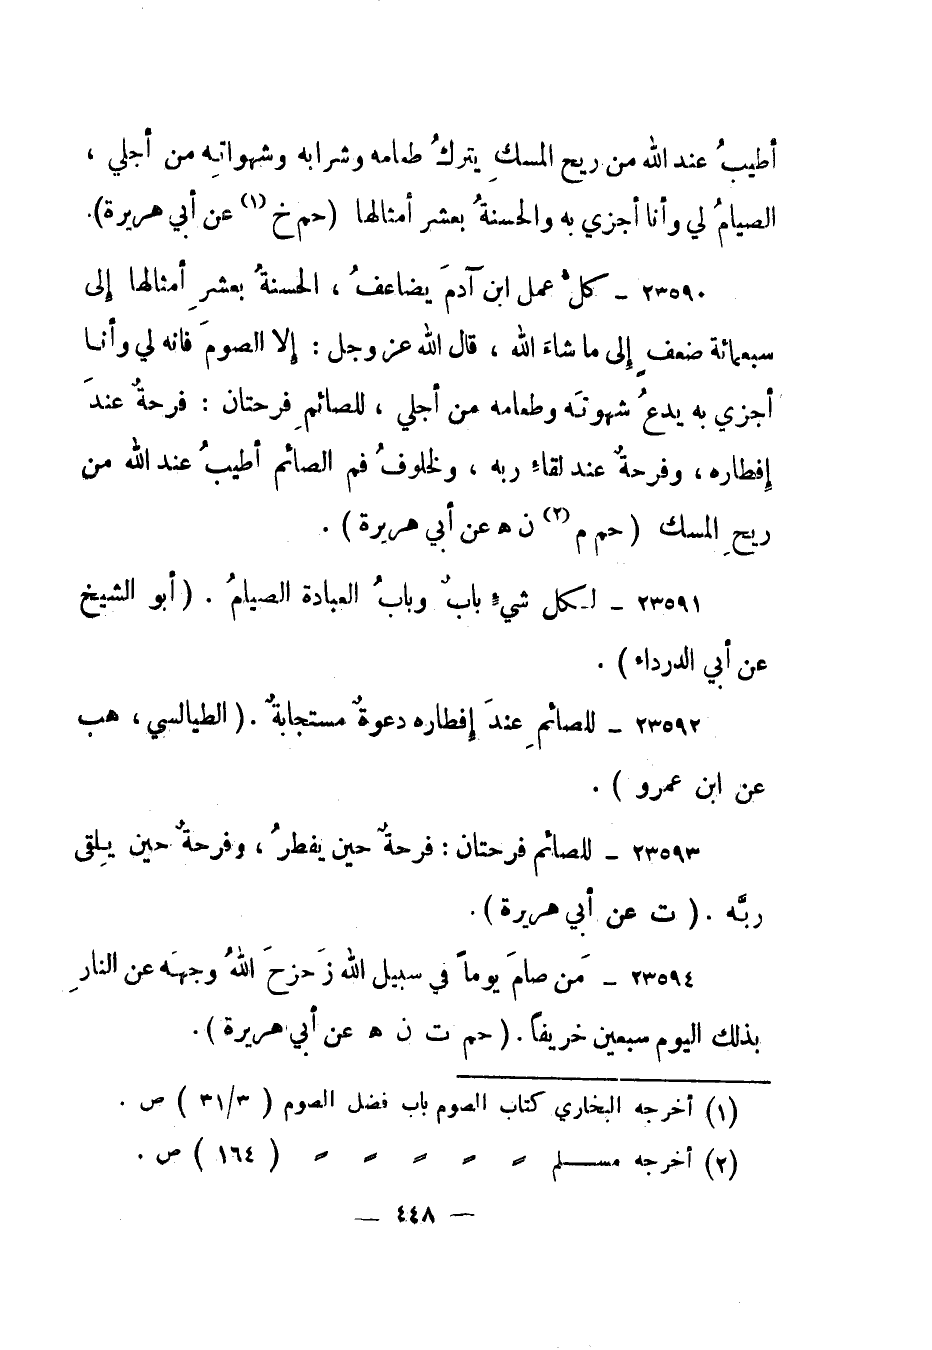 أطيبُ عند الله من ريح المسكِ يتركُ طعامه وشرابه وشهواتِه من أجلي ،
الصيامُ لي وأنا أجزي به والحسنةُ بعشر أمثالها (حم خ (١) عن أبي هريرة).
٢٣٥٩٠ ـ كلُ عمل ابن آدمَ يضاعفُ ، الحسنةُ بعشرِ أمثالها إلى
سبعمائة ضعفٍ إلى ما شاءَ الله ، قال الله عز وجل : إلا الصومَ فانه لي وأنا
أجزي به يدعُ شهوتَه وطعامه من أجلي ، للصائمِ فرحتان : فرحةٌ عندَ
إفطاره ، وفرحةٌ عند لقاءِ ربه ، ولخلوفُ فم الصائم أطيبُ عند الله من
ريحِ المسك (حم م (٢) ن ه عن أبي هريرة) .
٢٣٥٩١ ـ لكل شيءٍ بابٌ وبابُ العبادة الصيامُ . (أبو الشيخ
عن أبي الدرداء) .
٢٣٥٩٢ ـ للصائمِ عندَ إفطاره دعوةٌ مستجابةٌ . (الطيالسي ، هب
عن ابن عمرو ) .
٢٣٥٩٣ ـ للصائم فرحتان : فرحةٌ حين يفطرُ ، وفرحةٌ حين يلقى
ربَّه . ( ت عن أبي هريرة ) .
٢٣٥٩٤ ـ مَن صامَ يوماً في سبيل الله زَحزحَ اللهُ وجهَه عن النارِ
بذلك اليوم سبعين خريفاً . ( حم ت ن ه عن أبي هريرة ) .
(١) أخرجه البخاري كتاب الصوم باب فضل الصوم ( ٣١/٣ ) ص .
(٢) أخرجه مسلم 〃 〃 〃 〃 〃 ( ١٦٤ ) ص .
— ٤٤٨ —